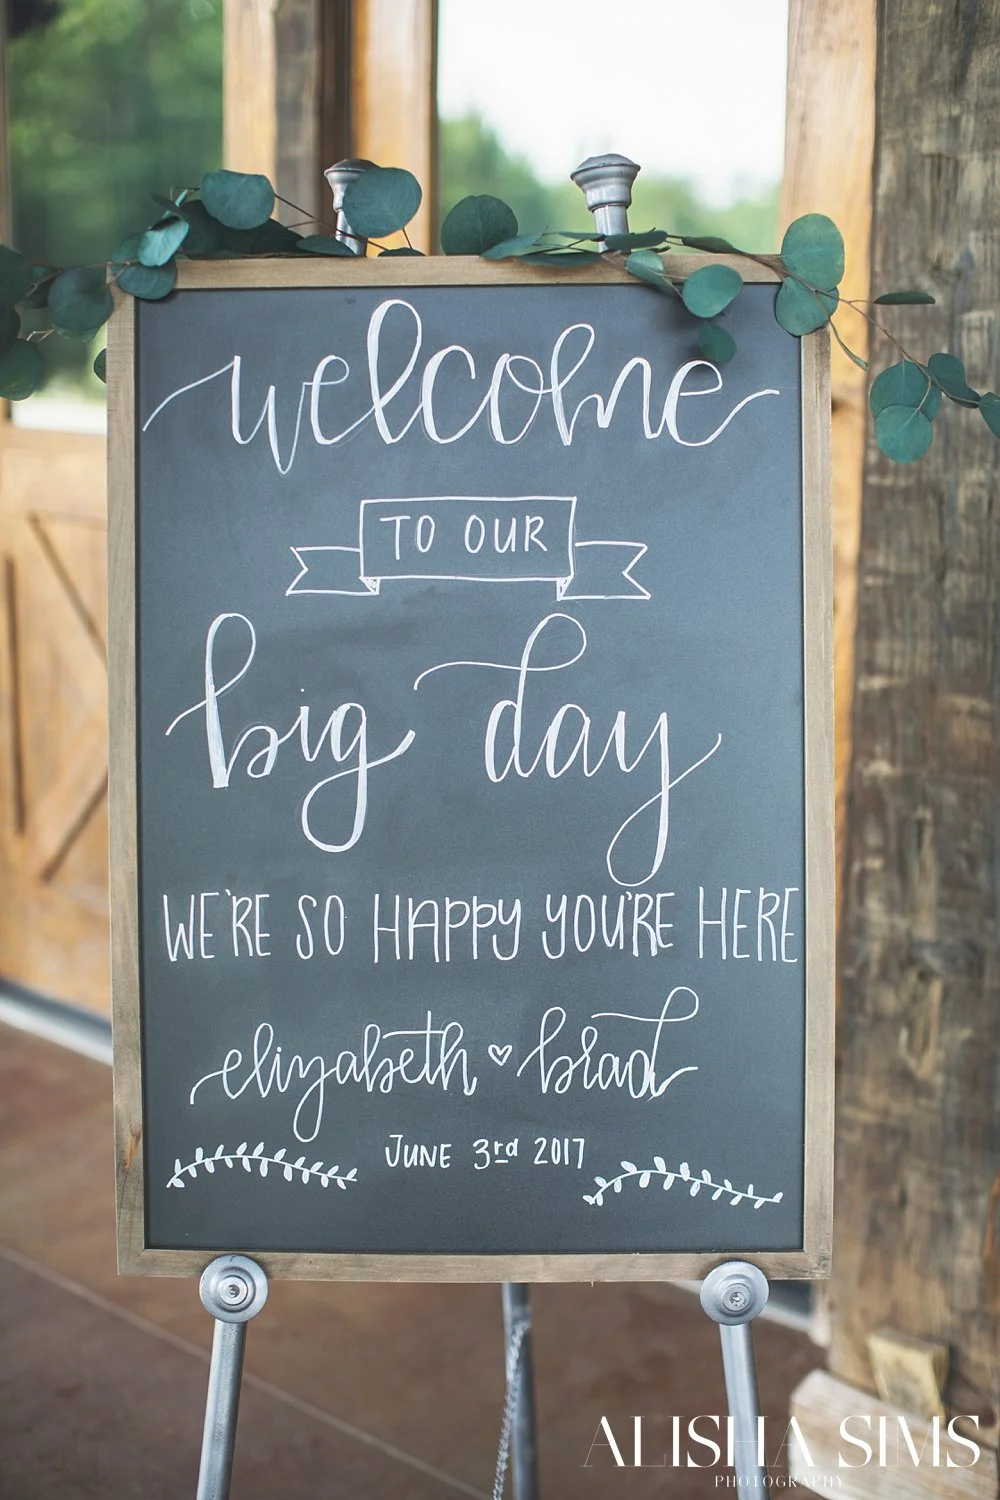 welcome
TO OUR
big day
WE'RE SO HAPPY YOU'RE HERE
elizabeth ♡ brad
JUNE 3rd 2017
ALISHA SIMS
PHOTOGRAPHY